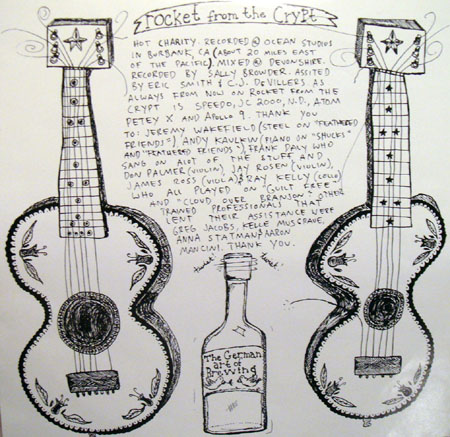 rocket from the Crypt
HOT CHARITY. RECORDED @ OCEAN STUDIOS
IN BURBANK, CA (ABOUT 20 MILES EAST
OF THE PACIFIC). MIXED @ DEVONSHIRE.
RECORDED BY SALLY BROWDER. ASSITED
BY ERIC SMITH & C.J. DEVILLERS AS
ALWAYS FROM NOW ON ROCKET FROM THE
CRYPT IS SPEEDO, JC 2000, N.D., ATOM
PETEY X AND APOLLO 9. THANK YOU
TO: JEREMY WAKEFIELD (STEEL ON "FEATHERED
FRIENDS"), ANDY KAULKIN (PIANO ON "SHUCKS"
AND "FEATHERED FRIENDS"), FRANK DALY WHO
SANG ON ALOT OF THE STUFF AND
DON PALMER (VIOLIN), JAY ROSEN (VIOLIN),
JAMES ROSS (VIOLA) & RAY KELLY (CELLO)
WHO ALL PLAYED ON "GUILT FREE"
AND "CLOUD OVER BRANSON". OTHER
TRAINED PROFESSIONALS THAT
LENT THEIR ASSISTANCE WERE
GREG JACOBS, KELLE MUSGRAVE,
ANNA STATMAN & AARON
MANCINI. THANK YOU.
The German
art of
Brewing